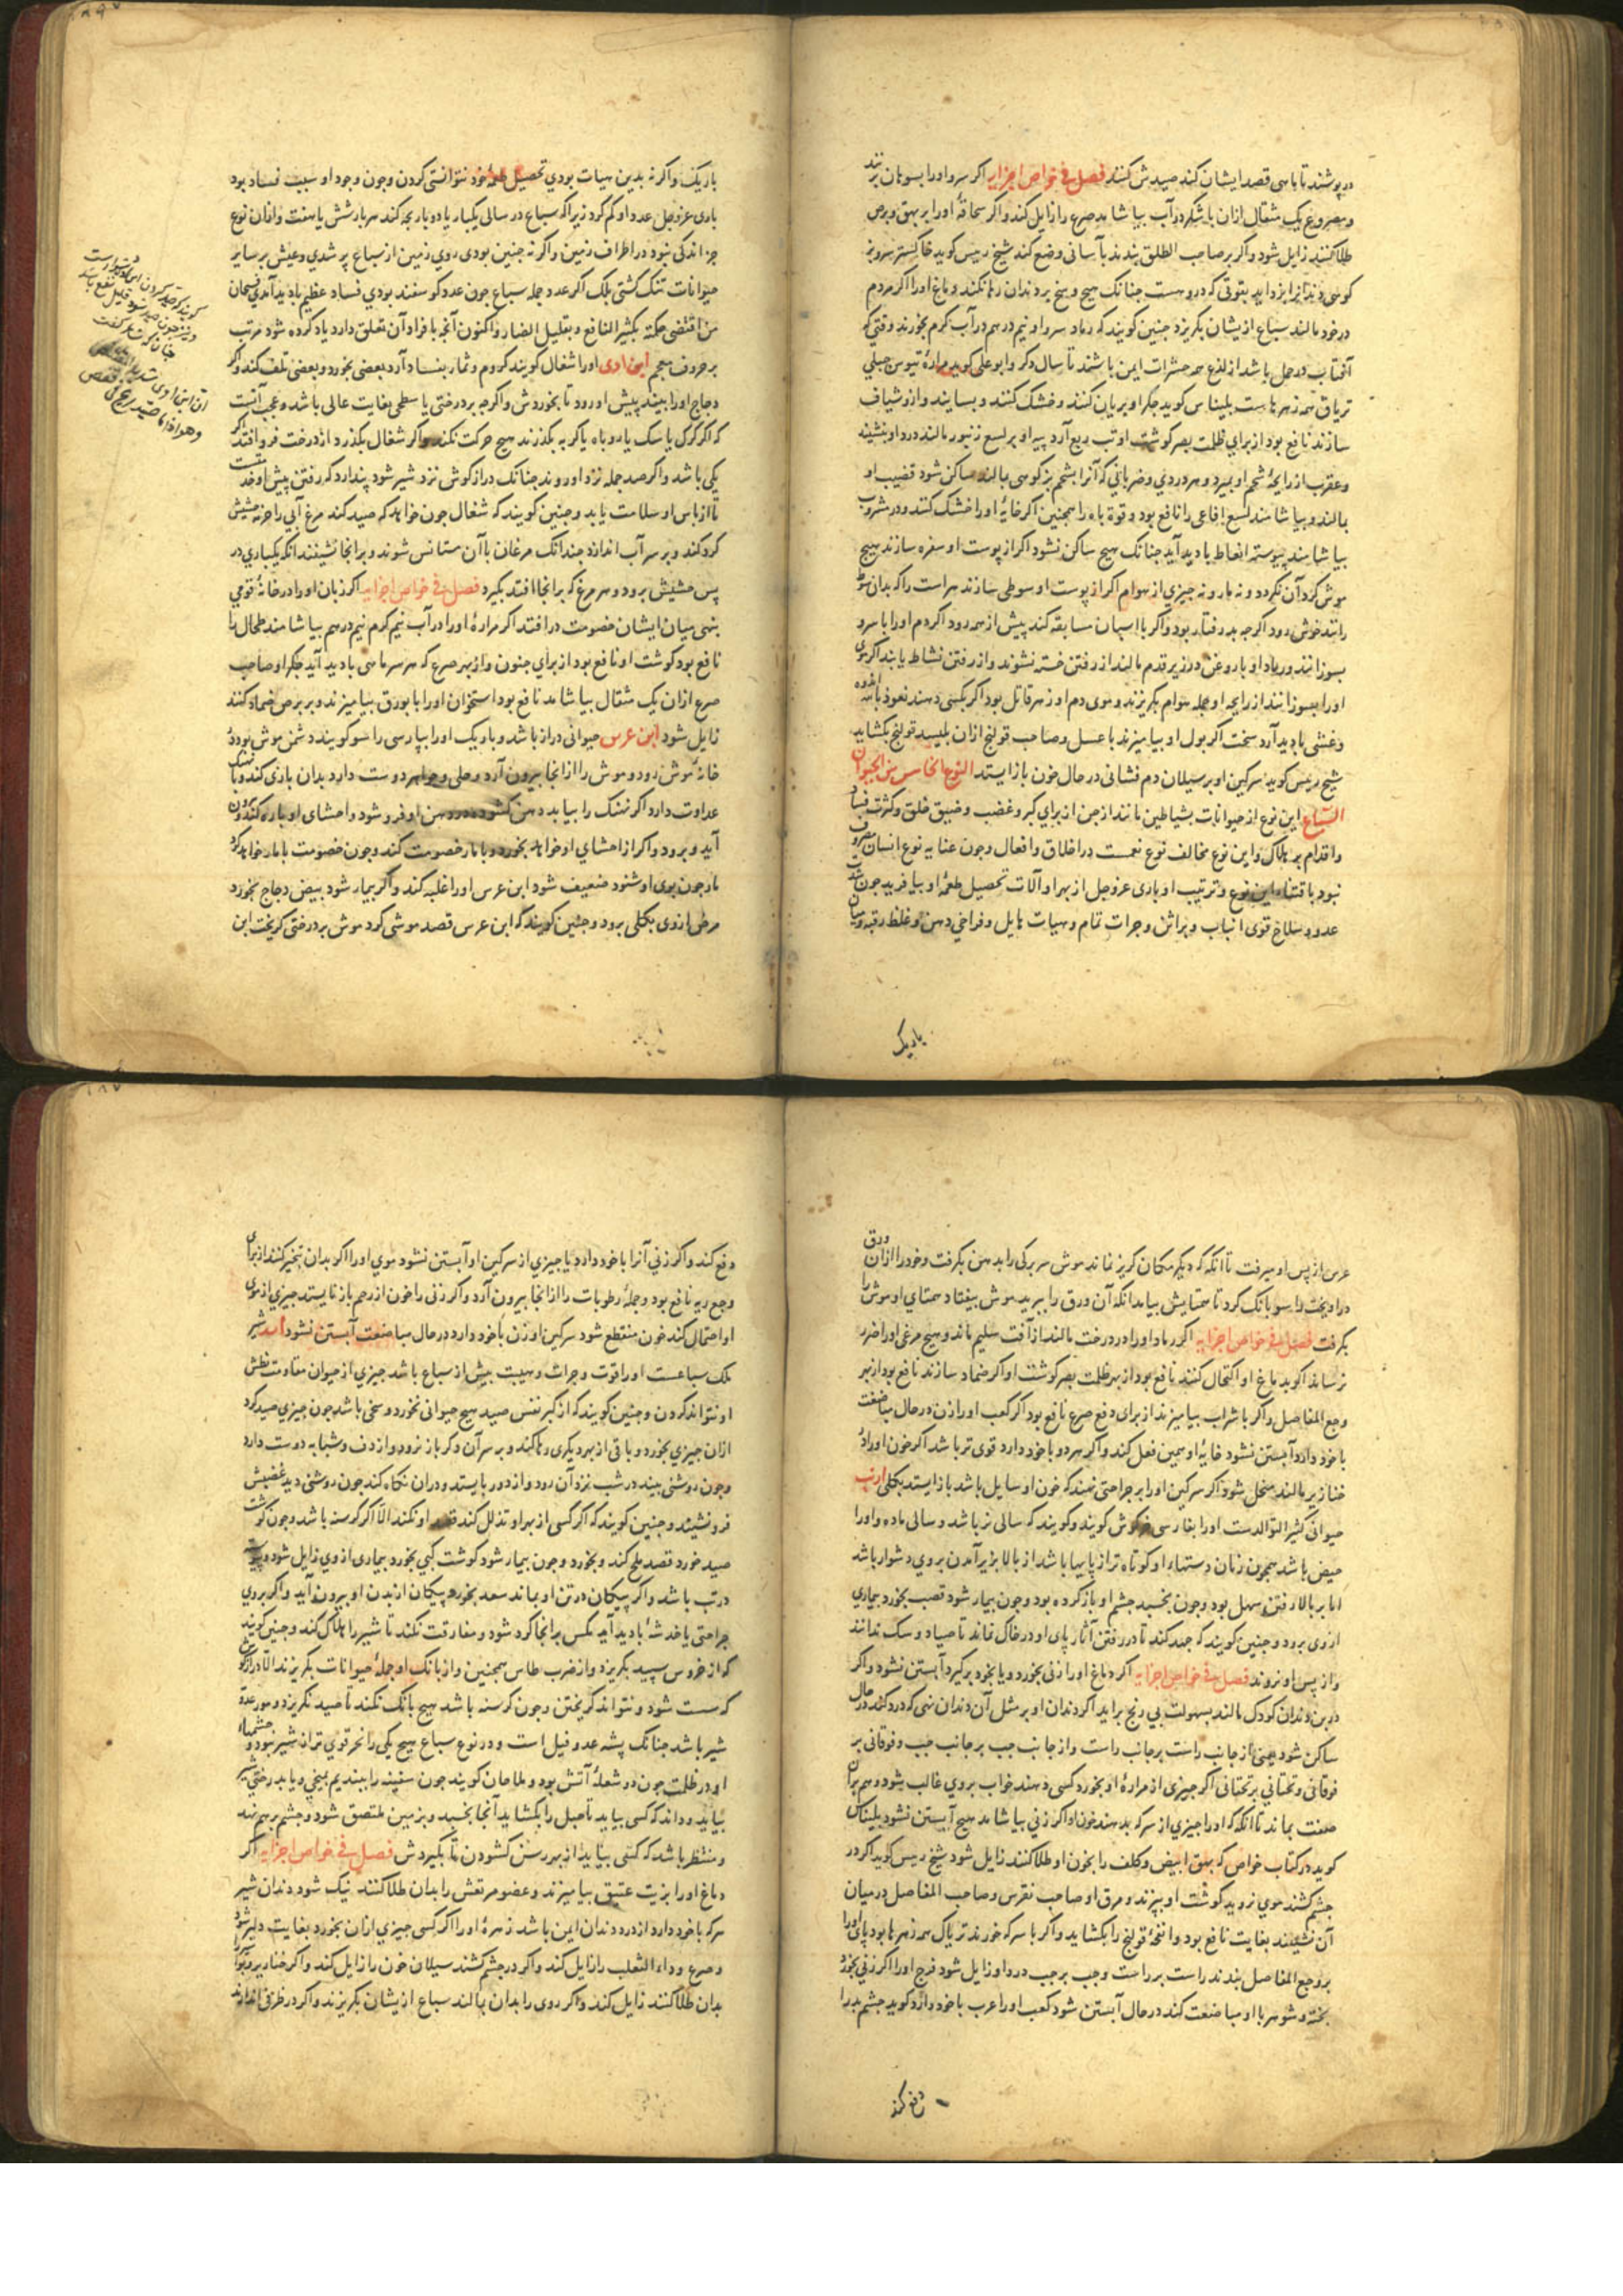 در پوشند تا باسی قصد ایشان کند صیدش کنند فصل فی خواص اجزایه اکر سرو اورا بسوهان برند
و مصروع یک مثقال ازان با شکر در آب بیاشامد صرع را زایل کند واکر سحاقهٔ اورا بر بهق و برص
طلا کنند زایل شود واکر بر صاحب الطلق بندند بآسانی وضع کند شیخ رییس کوید خاکستر سرو بز
کوهی دندانرا بزداید بقوتی که دروهست جنانک هیج وسخ بر دندان رها نکند و دماغ اورا اکر مردم
در خود مالند سباع ازیشان بکریزد جنین کویند که رماد سرو او نیم درهم در آب کرم بخورند وقتی که
آفتاب در حمل باشد از لذع همه حشرات ایمن باشند تا سال دکر و ابو علی کوید مرارهٔ تیوس جبلی
تریاق همه زهرهاست بلیناس کوید جکر او بریان کنند و خشک کنند و بسایند وازو شیاف
سازند نافع بود از برای ظلمت بصر کوشت او تب ربع آرد پیه او بر لسع زنبور مالند درد او بنشیند
وعقرب از رایحهٔ شحم او بمیرد و هر دردی و ضربانی که آنرا بشحم بز کوهی بمالند ساکن شود قضیب او
بمالند و بیاشامند لسع افاعی را نافع بود و قوة باه را همجنین اکر خایهٔ اورا خشک کنند و در مشروب
بیاشامند پیوسته انعاط بادید آید جنانک هیج ساکن نشود اکر از پوست او سفره سازند هیج
موش کرد آن نکردد و نه مار و نه جیزی از هوام اکر از پوست او سوطی سازند هر است را که بدان سوط
رانند خوش رود اکرجه بد رفتار بود واکر با اسپان مسابقه کند پیش از همه رود اکر دم اورا با سرو
بسوزانند و رماد او با روغن در زیر قدم مالند از رفتن خسته نشوند واز رفتن نشاط یابند اکر موی
اورا بسوزانند از رایحه او جمله هوام بکریزند و موی دم او زهر قاتل بود اکر بکسی دهند نعوذ بالله اندوه
وغشی بادید آرد سخت اکر بول او بیامیزند با عسل و صاحب قولنج ازان بلیسد قولنج بکشاید
شیخ رییس کوید سرکین او بر سیلان دم فشانی در حال خون باز ایستد النوع الخامس من الحیوان
السباع این نوع از حیوانات بشیاطین مانند از جن از برای کبر و غضب و ضیق خلق و کثرت فساد
واقدام بر هلاک و این نوع مخالف نوع نعمست در اخلاق و افعال وجون عنایه نوع انسان مصروف
نبود باقتناء این نوع و ترتیب او باری عزوجل از بهر او آلات تحصیل طعمهٔ او بیافرید جون شدت
عدو و سلاح قوی انیاب و براثن و جرات تمام و هیات هایل و فراخی دهن و غلظ رقبه و میان
باریک
باریک واکر نه بدین هیات بودی تحصیل طعمهٔ خود نتوانستی کردن وجون وجود او سبب فساد بود
باری عزوجل عدد او کم کرد زیرا که سباع در سالی یکبار یا دو بار بجه کند هر بار شش یا هفت وازان نوع
جز اندکی نبود در اطراف زمین واکر نه جنین بودی روی زمین از سباع پر شدی وعیش بر سایر
حیوانات تنک کشتی بلک اکر عدد جمله سباع جون عدد کوسفند بودی فساد عظیم بادید آمدی فسبحان
من اقتضی حکمته بکثیر المنافع و بقلیل المضار واکنون آنجه بافراد آن تعلق دارد یاد کرده شود مرتب
بر حروف معجم ابن اوی اورا شغال کویند کروم و ثمار بفساد آرد بعضی بخورد و بعضی تلف کند واکر
دجاج اورا ببیند پیش او رود تا بخوردش واکرجه بر درختی یا سطحی بغایت عالی باشد وعجب آنست
که اکر کرک یا سک یا روباه یا کربه بکذرند هیج حرکت نکند واکر شغال بکذرد از درخت فرو افتد اکر
یکی باشد واکر صد جمله نزد او روند جنانک دراز کوش نزد شیر شود پندارد که رفتن پیش او خدمتیست
تا از باس او سلامت یابد و جنین کویند که شغال جون خواهد که صید کند مرغ آبی را حزمه حشیش
کرد کند و بر سر آب اندازد جندانک مرغان با آن مستانس شوند و بر آنجا نشینند آنکه یکباری در
پس حشیش برود و هر مرغ که بر آنجا افتد بکیرد فصل فی خواص اجزایه اکر زبان اورا در خانهٔ قومی
بنهی میان ایشان خصومت در افتد اکر مرارهٔ اورا در آب نیم کرم نیم درهم بیاشامند طحال را
نافع بود کوشت او نافع بود از برای جنون واز بهر صرع که هر سر ماهی بادید آید جکر او صاحب
صرع ازان یک مثقال بیاشامد نافع بود استخوان اورا با بورق بیامیزند و بر برص ضماد کنند
زایل شود ابن عرس حیوانی دراز باشد و باریک اورا بپارسی راسو کویند دشمن موش بود در
خانهٔ موش رود و موش را از انجا بیرون آرد و حلی و جواهر دوست دارد بدان بازی کند و با نهنک
عداوت دارد اکر نهنک را بیابد دهن کشوده در دهن او فرو شود و احشای او پاره کند و بیرون
آید و برود واکر از احشای او خواهد بخورد و با مار خصومت کند وجون خصومت با مار خواهد کرد
مار جون بوی او شنود ضعیف شود ابن عرس اورا غلبه کند واکر بیمار شود بیض دجاج بخورد
مرض از وی بکلی برود و جنین کویند که ابن عرس قصد موشی کرد موش بر درختی کریخت ابن
عرس از پس او میرفت تا انکه که دیکر مکان کریز نماند موش سر برکی را بدهن بکرفت وخودرا ازان ورق
در اویخت راسو بانک کرد تا همتایش بیامد انکه آن ورق را ببرید موش بیفتاد همتای او موش را
بکرفت فصل فی خواص اجزایه اکر رماد اورا در درخت مالند از آفت سلیم ماند و هیج مرغی اورا ضرر
نرساند اکوید دماغ او اکتحال کنند نافع بود از بهر ظلمت بصر کوشت او اکر ضماد سازند نافع بود از بهر
وجع المفاصل واکر با شراب بیامیزند از برای دفع صرع نافع بود اکر کعب اورا زن در حال مباضعت
با خود دارد آبستن نشود خایهٔ او همین فعل کند واکر هر دو با خود دارد قوی تر باشد اکر خون اورا در
خنازیر مالند منحل شود اکر سرکین اورا بر جراحتی نهند که خون او سایل باشد باز ایستد بکلی ارنب
حیوانی کثیر التوالدست اورا بفارسی خرکوش کویند و کویند که سالی نر باشد و سالی ماده و اورا
حیض باشد همجون زنان دستهاء او کوتاه تر از پایها باشد از بالا بزیر آمدن بروی دشوار باشد
اما بر بالا رفتن سهل بود وجون بخسبد جشم او باز کرده بود وجون بیمار شود قصب بخورد بیماری
ازوی برود و جنین کویند که جهد کند تا در رفتن آثار پای او در خاک نماند تا صیاد و سک ندانند
واز پس او نروند فصل فی خواص اجزایه اکر دماغ اورا زنی بخورد و یا بخود برکیرد آبستن نشود واکر
در بن دندان کودک مالند بسهولت بی رنج براید اکر دندان او بر مثل آن دندان نهی که درد کند در حال
ساکن شود یعنی از جانب راست بر جانب راست واز جانب جب بر جانب جب و فوقانی بر
فوقانی و تحتانی بر تحتانی اکر جیزی از مرارهٔ او بخورد کسی دهند خواب بروی غالب شود و هم بران
صفت بماند تا انکه که اورا جیزی از سرکه بدهند خون او اکر زنی بیاشامد هیج آبستن نشود بلیناس
کوید در کتاب خواص که بهق ابیض و کلف را بخون او طلا کنند زایل شود شیخ رییس کوید اکر در
جشم کشند موی نروید کوشت او بپزند و مرق او صاحب نقرس و صاحب المفاصل در میان
آن نشیند بغایت نافع بود وانفحهٔ قولنج را بکشاید واکر با سرکه خورند تریاک همه زهرها بود پای اورا
بر وجع المفاصل بندند راست بر راست وجب بر جب درد او زایل شود فرج اورا اکر زنی بخورد
پخته و شوهر با او مباضعت کند در حال آبستن شود کعب اورا عرب با خود دارد کوید جشم بد را
دفع کند
دفع کند واکر زنی آنرا با خود دارد یا جیزی از سرکین او آبستن نشود موی اورا اکر بدان تبخیر کنند از برای
وجع ریه نافع بود و جملهٔ رطوبات را از انجا بیرون آرد واکر زنی را خون از رحم باز نایستد جیزی از موی
او احتمال کند خون منقطع شود سرکین او زن با خود دارد در حال مباضعت آبستن نشود اسد شیر
ملک سباعست اورا قوت و جرات و هیبت بیش از سباع باشد جیزی از حیوان مقاومت بطش
او نتواند کردن و جنین کویند که از کبر نفس صید هیج حیوانی نخورد و سخی باشد جون جیزی صید کرد
ازان جیزی بخورد و باقی از بهر دیکری رها کند و بر سر آن دکر باز نرود واز دف و شبابه دوست دارد
وجون روشنی بیند در شب نزد آن رود واز دور بایستد و دران نکاه کند جون روشنی دید غضبش
فرو نشیند و جنین کویند که اکر کسی از بهر او تذلل کند قصد او نکند الا اکر کرسنه باشد وجون کوشت
صید خورد قصد ملح کند و بخورد وجون بیمار شود کوشت کپی بخورد بیماری ازوی زایل شود و پیوسته
در تب باشد واکر پیکان در تن او بماند سعد بخورد پیکان از بدن او بیرون آید واکر بروی
جراحتی یا خدشهٔ بادید آید مکس بر انجا کرد شود و مفارقت نکند تا شیر را هلاک کند و جنین کویند
که از خروس سپید بکریزد واز ضرب طاس همجنین واز بانک او جملهٔ حیوانات بکریزند الا دراز کوش
که سست شود و نتواند کریختن وجون کرسنه باشد هیج بانک نکند تا صید نکریزد و مور عدو
شیر باشد جنانک پشه عدو فیل است و در نوع سباع هیج یکی را نحر قوی تر از شیر نبود و جشمهاء
او در ظلمت جون دو شعلهٔ آتش بود و ملاحان کویند جون سفینه را ببندیم بمیخی و یا بدرختی شیر
بیاید و داند که کسی بیاید تا حبل را بکشاید آنجا بخسبد و بزمین ملتصق شود و جشم بر هم نهد
و منتظر باشد که کسی بیاید از بهر رسن کشودن تا بکیردش فصل فی خواص اجزایه اکر
دماغ اورا بزیت عتیق بیامیزند و عضو مرتعش را بدان طلا کنند نیک شود دندان شیر
هر که با خود دارد از درد دندان ایمن باشد زهرهٔ اورا اکر کسی جیزی ازان بخورد بغایت دلیر شود
و صرع و داء الثعلب را زایل کند واکر در جشم کشند سیلان خون را زایل کند واکر خنازیر
بدان طلا کنند زایل کند واکر روی را بدان بمالند سباع ازیشان بکریزند واکر در ظرفی اندازند